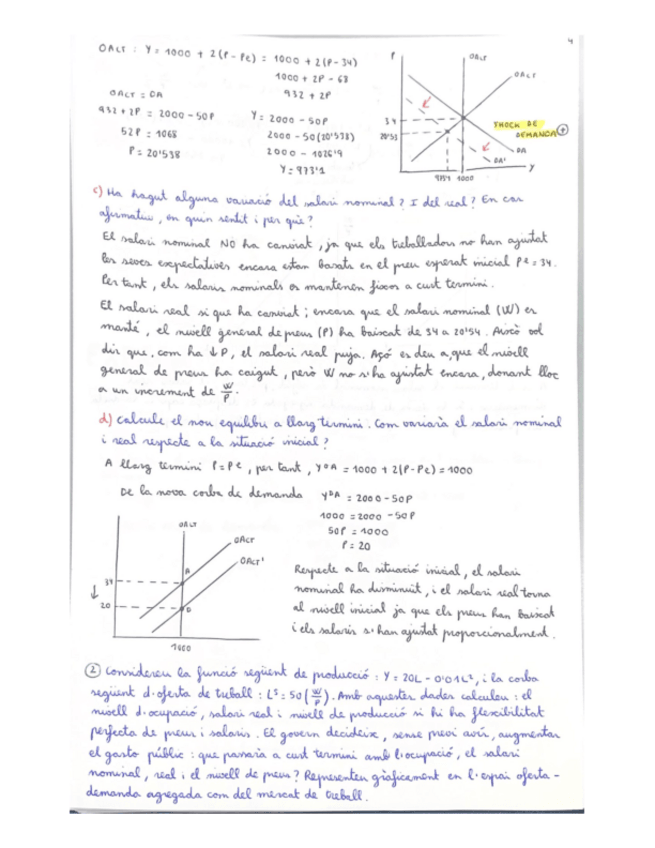 4
OALT : Y = 1000 + 2(P - Pe) = 1000 + 2(P - 34)
1000 + 2P - 68
932 + 2P
OACT = DA
932 + 2P = 2000 - 50P
52P = 1068
P = 20'538
Y = 2000 - 50P
2000 - 50(20'538)
2000 - 1026'9
Y = 973'1
P
OALT
OACT
34
20'53
SHOCK DE
DEMANDA
DA
DA'
Y
973'1 1000
c) Ha hagut alguna variació del salari nominal? I del real? En cas
afirmatiu, en quin sentit i per què?
El salari nominal NO ha canviat, ja que els treballadors no han ajustat
les seves expectatives encara estan basats en el preu esperat inicial Pe = 34.
Per tant, els salaris nominals es mantenen fixos a curt termini.
El salari real si que ha canviat; encara que el salari nominal (W) es
manté, el nivell general de preus (P) ha baixat de 34 a 20'54. Això vol
dir que, com ha ↓P, el salari real puja. Açó es deu a que el nivell
general de preus ha caigut, però W no s'ha ajustat encara, donant lloc
a un increment de W/P.
d) Calcule el nou equilibri a llarg termini. Com variarà el salari nominal
i real respecte a la situació inicial?
A llarg termini P = Pe, per tant, YOA = 1000 + 2(P - Pe) = 1000
De la nova corba de demanda
YDA = 2000 - 50P
1000 = 2000 - 50P
50P = 1000
P = 20
OALT
OACT
OACT'
A
34
↓
20
1000
Respecte a la situació inicial, el salari
nominal ha disminuït, i el salari real torna
al nivell inicial ja que els preus han baixat
i els salaris s'han ajustat proporcionalment.
② Considereu la funció següent de producció : Y = 20L - 0'01L², i la corba
següent d'oferta de treball : Ls = 50(W/P). Amb aquestes dades calculeu : el
nivell d'ocupació, salari real i nivell de producció si hi ha flexibilitat
perfecta de preus i salaris. El govern decideix, sense previ avís, augmentar
el gasto públic : que passaria a curt termini amb l'ocupació, el salari
nominal, real i el nivell de preus? Representeu gràficament en l'espai oferta -
demanda agregada com del mercat de treball.